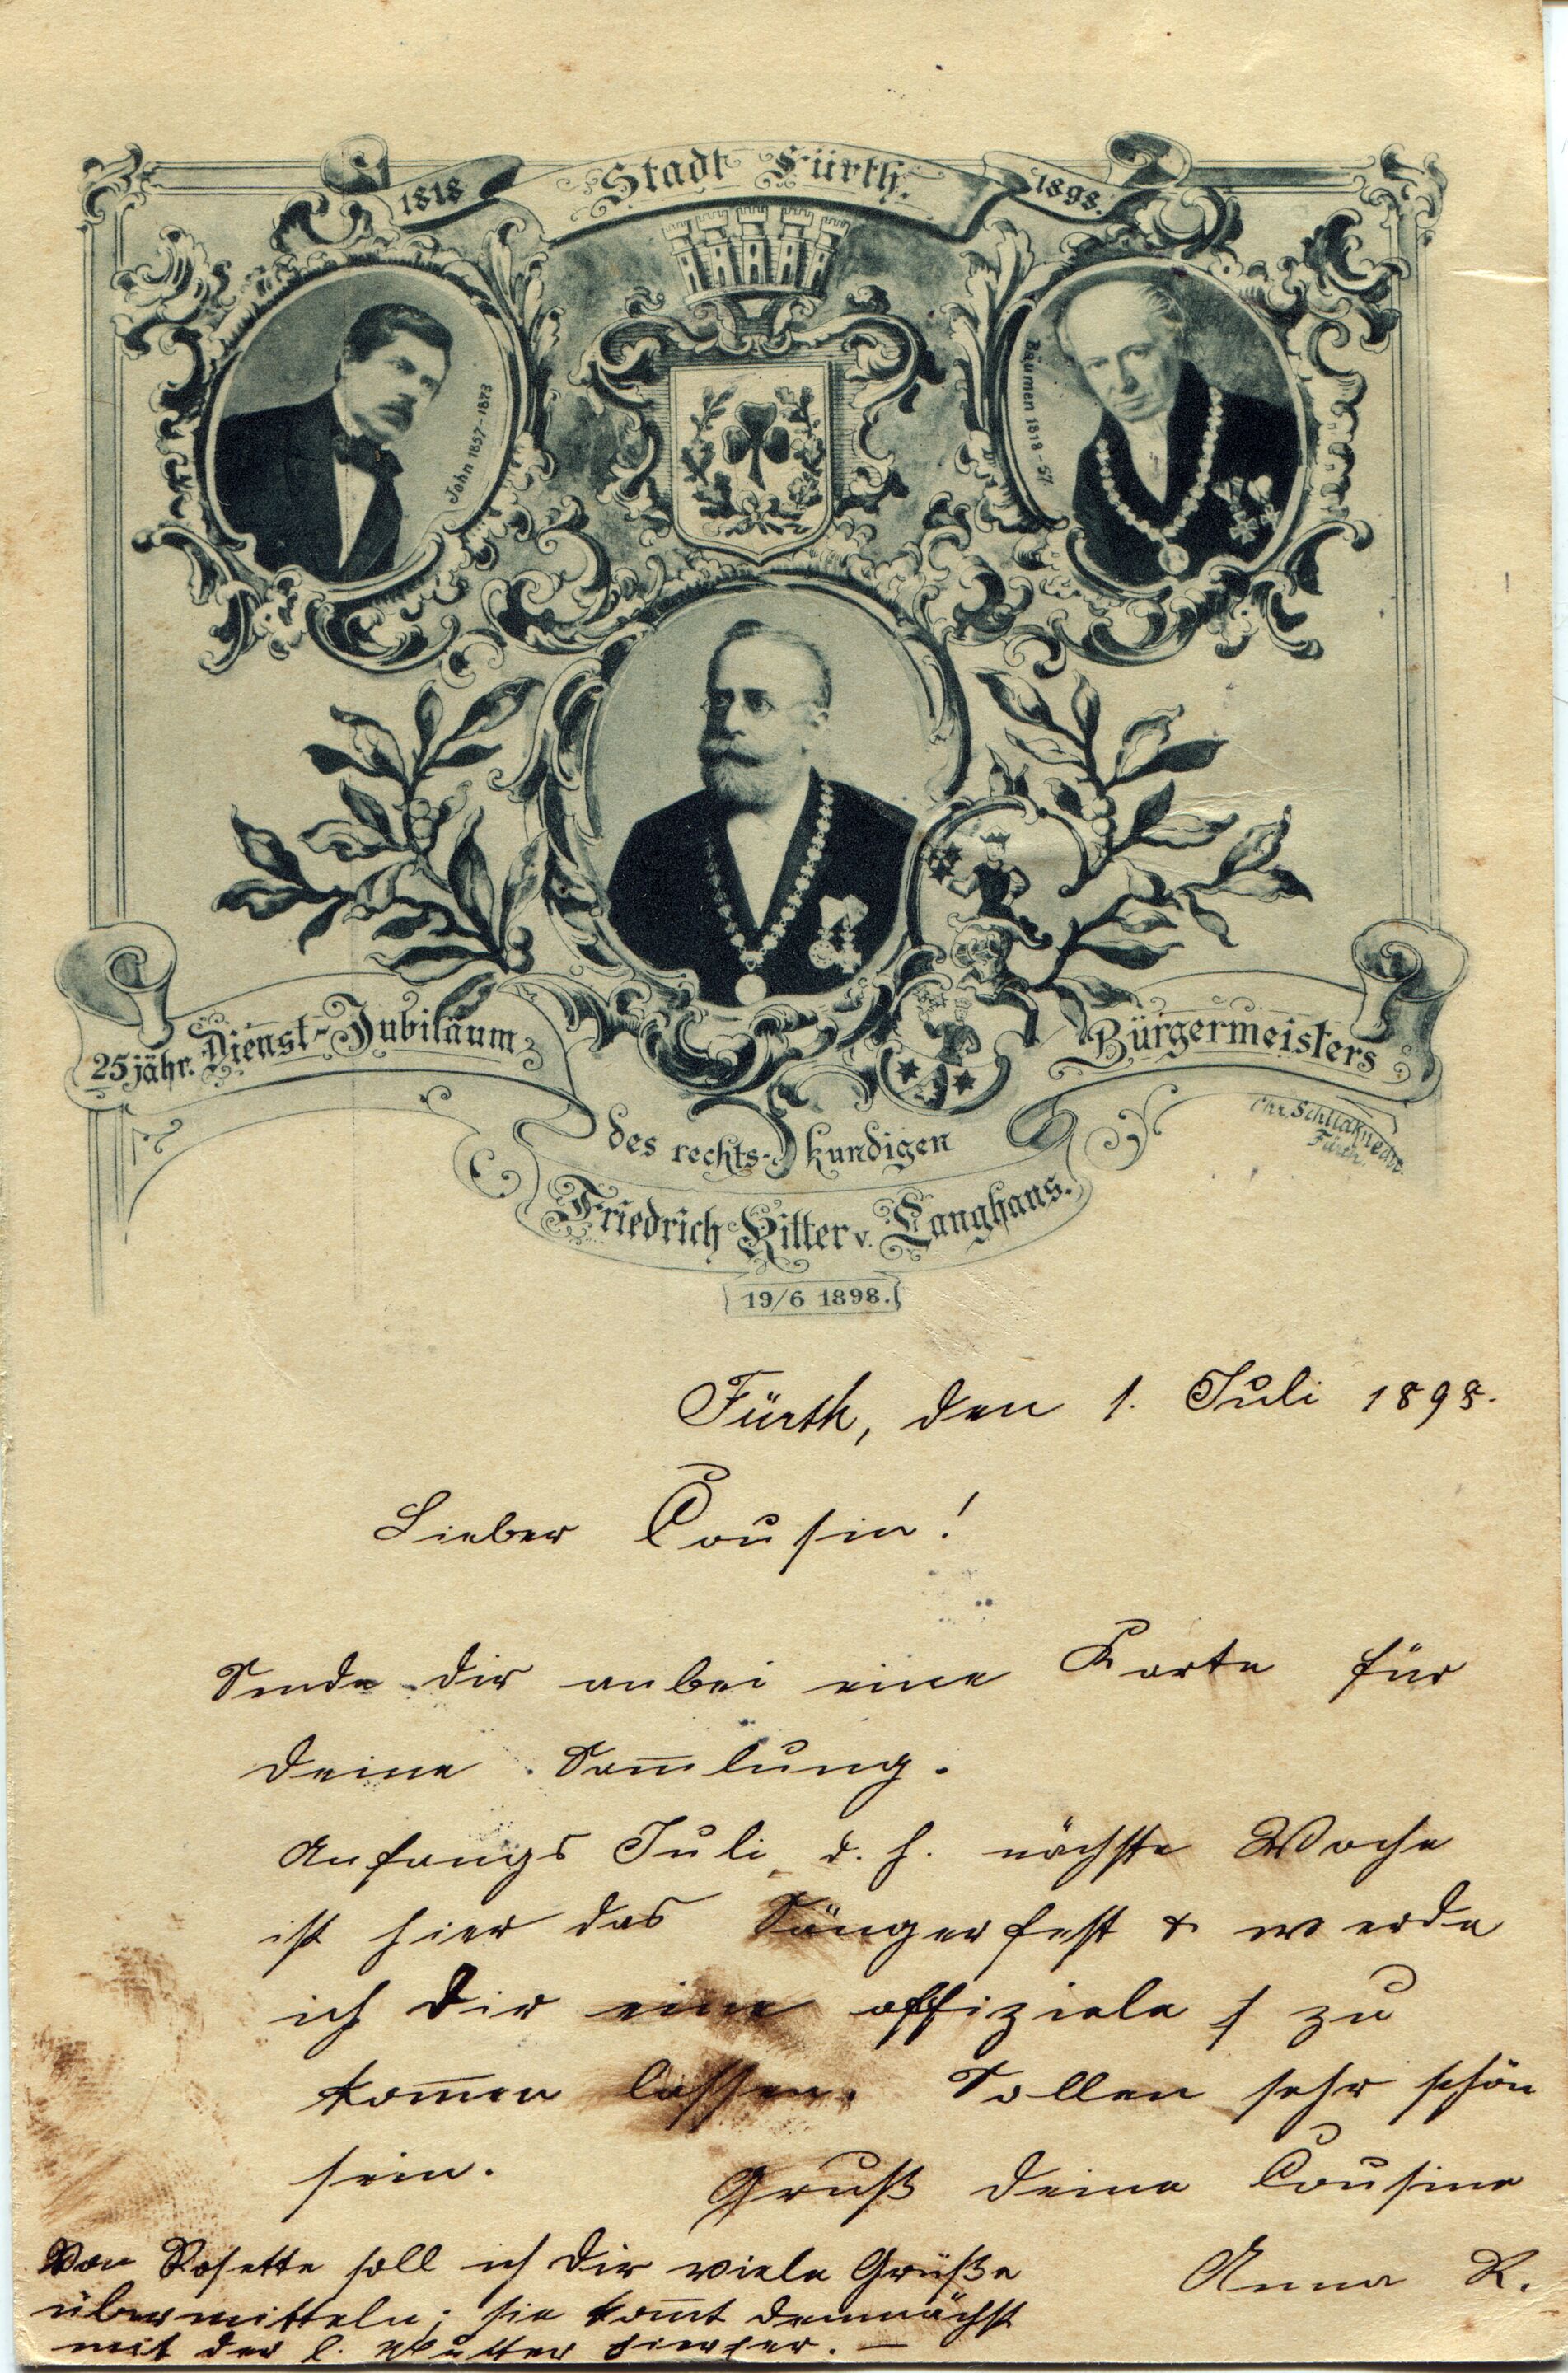 1818 Stadt Fürth. 1898.
John 1857-1873
Bäumen 1818-57
25jähr. Dienst-Jubiläum
des rechts-kundigen
Bürgermeisters
Friedrich Ritter v. Langhans.
19/6 1898.
Fürth.
Fürth, den 1. Juli 1898.
Lieber Cousin!
Sende dir anbei eine Karte für
deine Sam̅lung.
Anfangs Juli, d. h. nächste Woche
ist hier das Sängerfest & werde
ich Dir eine offiziele zu
kom̅en lassen. Sollen sehr schön
sein.
Gruß deine Cousine
Anna R.
Von Rosette soll ich Dir viele Grüße
übermitteln; sie kom̅t demnächst
mit der l. Mutter hierher. —